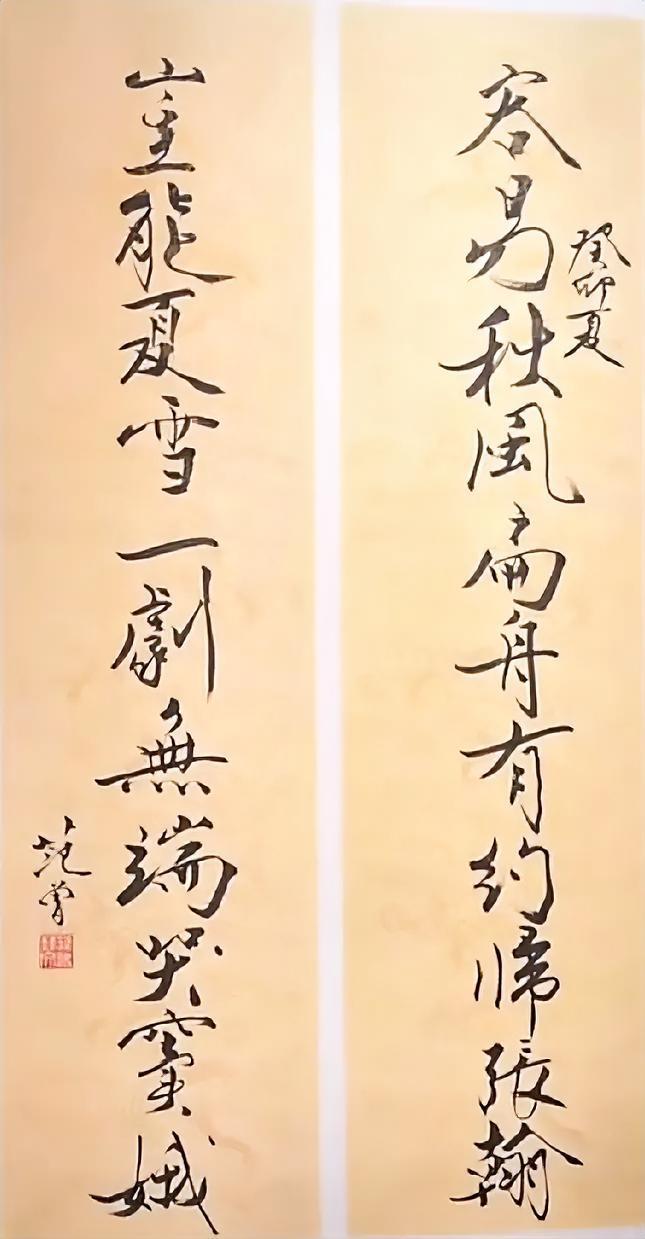 癸卯夏
容易秋風扁舟有約帰張翰
豈能夏雪一劇無端哭竇娥
范曾